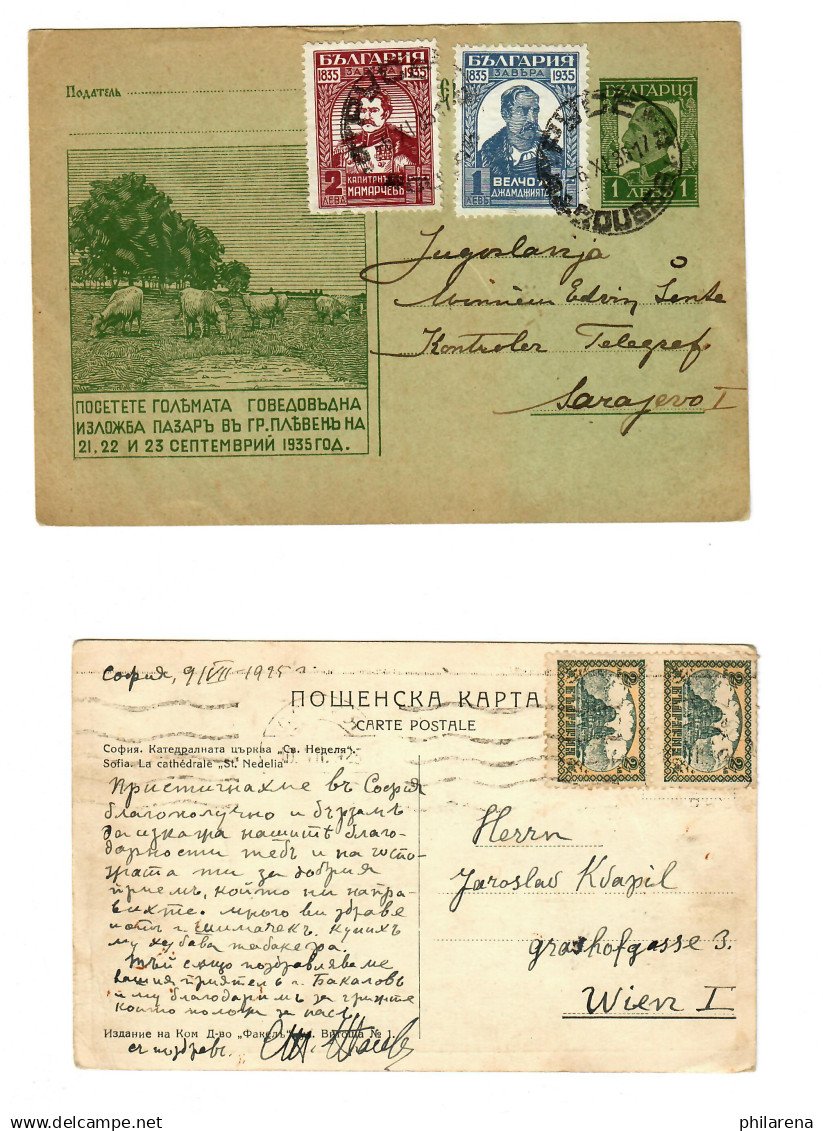 Податель
БЪЛГАРИЯ
1835 ЗАВѢРА 1935
2 ЛЕВА
КАПИТАНЪ
МАМАРЧЕВЪ
БЪЛГАРИЯ
1835 ЗАВѢРА 1935
1 ЛЕВЪ
ВЕЛЧО А.
ДЖАМДЖИЯТА
БЪЛГАРИЯ
1 ЛЕВЪ 1
РУСЕ
ROUSSE
Jugoslavija
Edvin
Kontrolor Telegraf
Sarajevo I
ПОСЕТЕТЕ ГОЛѢМАТА ГОВЕДОВЪДНА
ИЗЛОЖБА ПАЗАРЪ ВЪ ГР. ПЛѢВЕНЪ НА
21, 22 И 23 СЕПТЕМВРИЙ 1935 ГОД.
София, 9/VII 1925
ПОЩЕНСКА КАРТА
CARTE POSTALE
2 2
БЪЛГАРИЯ
2 2
БЪЛГАРИЯ
София. Катедралната църква „Св. Неделя“.
Sofia. La cathédrale „St. Nedelia“
Пристигнахме въ София
благополучно и бързамъ
да изкажа нашитѣ благо-
дарности тебъ и на госпо-
жата ти за добрия
приемъ, който ни напра-
вихте. Много ви здраве
отъ г. купихъ
му хубава табакера.
Тъй също поздравляваме
вашия приятель г. Бакаловъ
и му благодаримъ за грижите
които положи за насъ.
Издание на Ком Д-во „Факелъ“ ул. Витоша № 1.
съ поздравъ
Herrn
Jaroslav Kvapil
grashofgasse 3.
Wien I
philarena